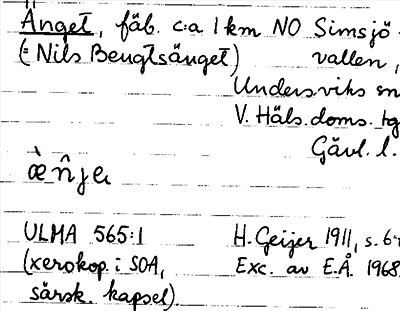 Änget, fäb. c:a 1 km NO Simsjö-
(= Nils Bengtsänget) vallen,
Undersviks sn
V. Häls. doms. tg
Gävl. l.
æ̀n̂ja
ULMA 565:1 H. Geijer 1911, s. 64
(xerokop. i SOA, Exc. av E.Å. 1968
särsk. kapsel).